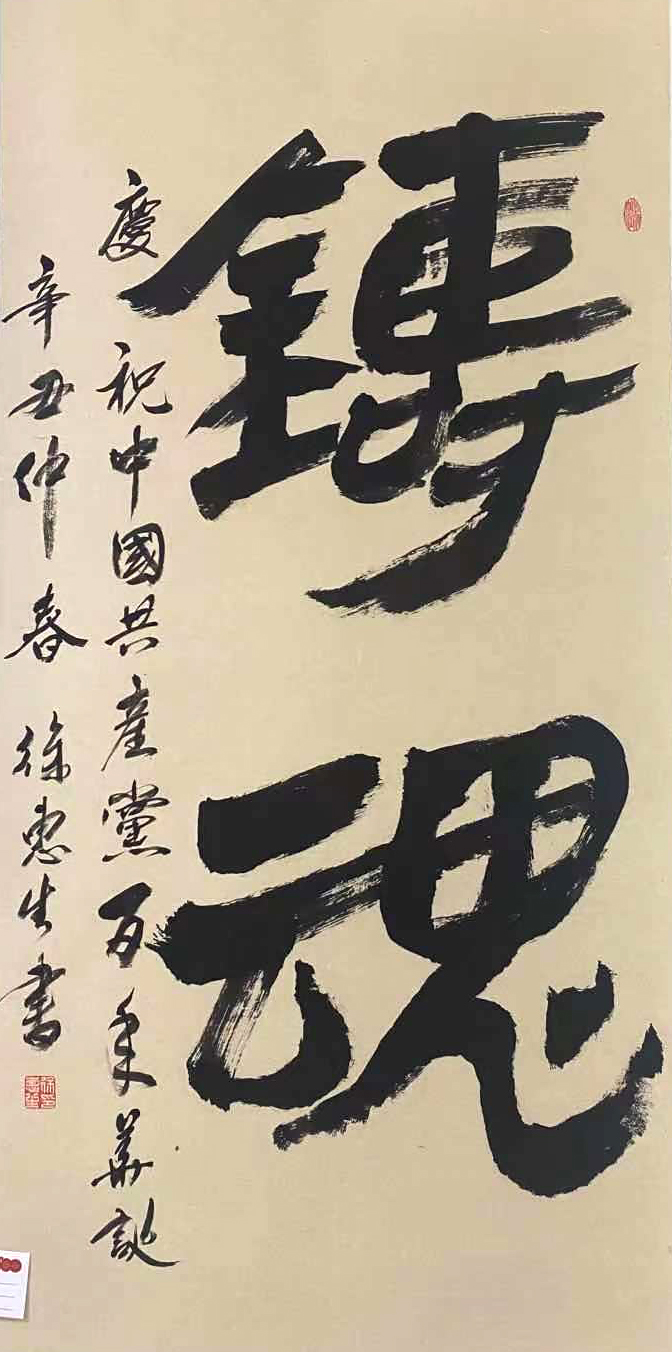 鑄魂
慶祝中國共產黨百年華誕
辛丑仲春 徐惠生書